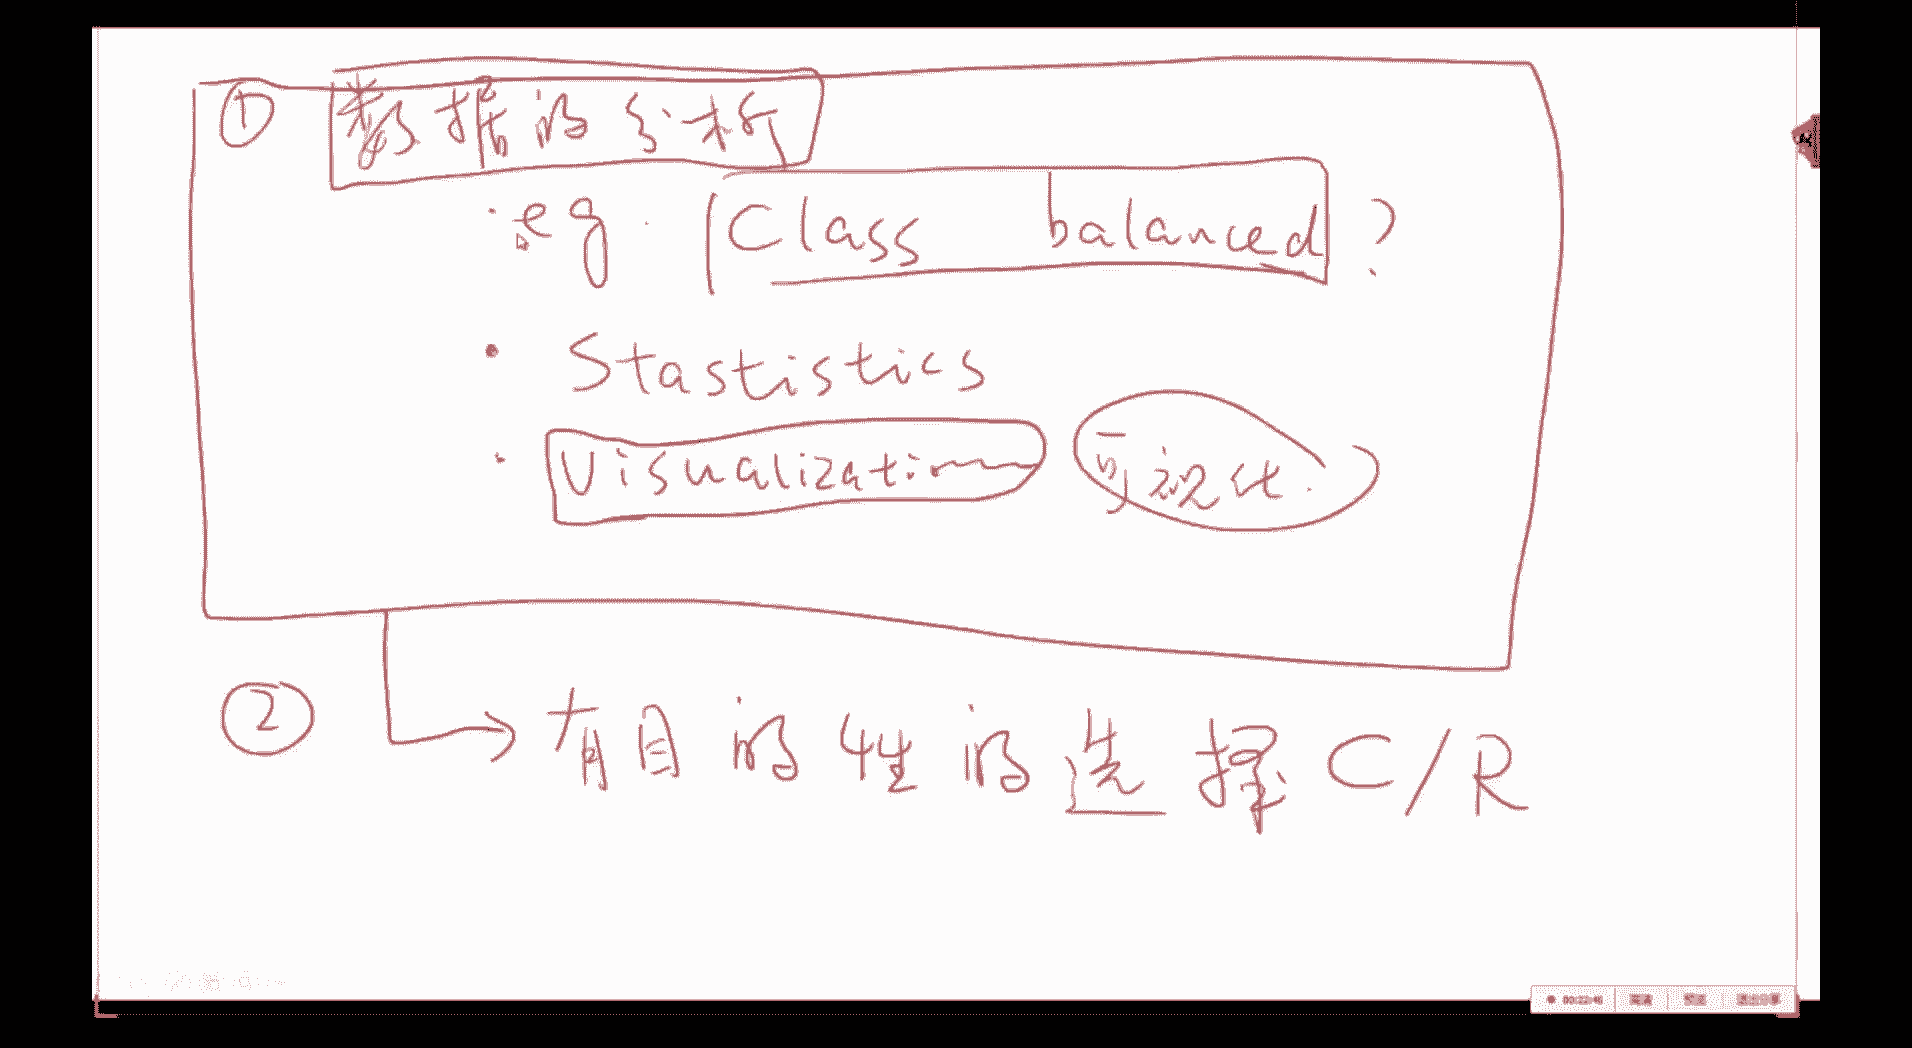 ① 数据的分析
· eg. Class balanced ?
· Stastistics
· Visualization 可视化.
② → 有目的性的选择 C/R
00:22:46